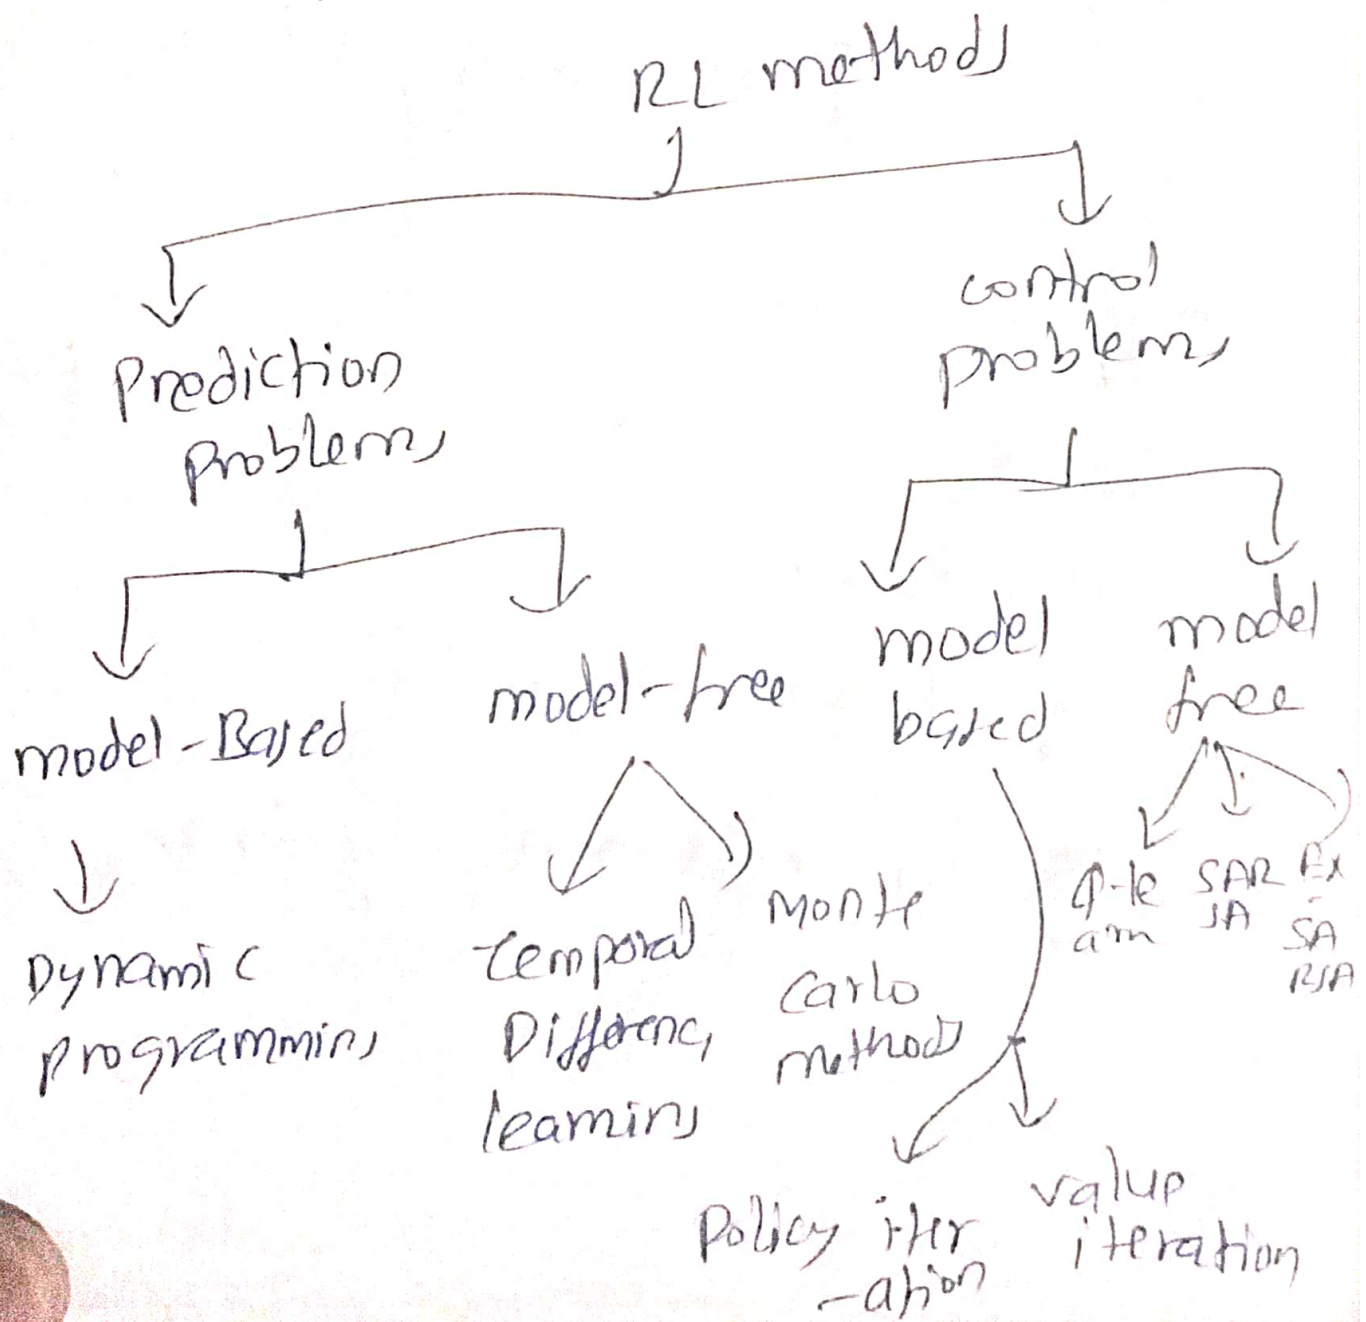 RL methods
Prediction
Problems
control
problems
model-Based
model-free
model
based
model
free
Dynamic
programming
Temporal
Difference
learning
Monte
Carlo
methods
Q-le
arn
SAR
SA
Ex
-
SA
RSA
Policy iter
-ation
value
iteration